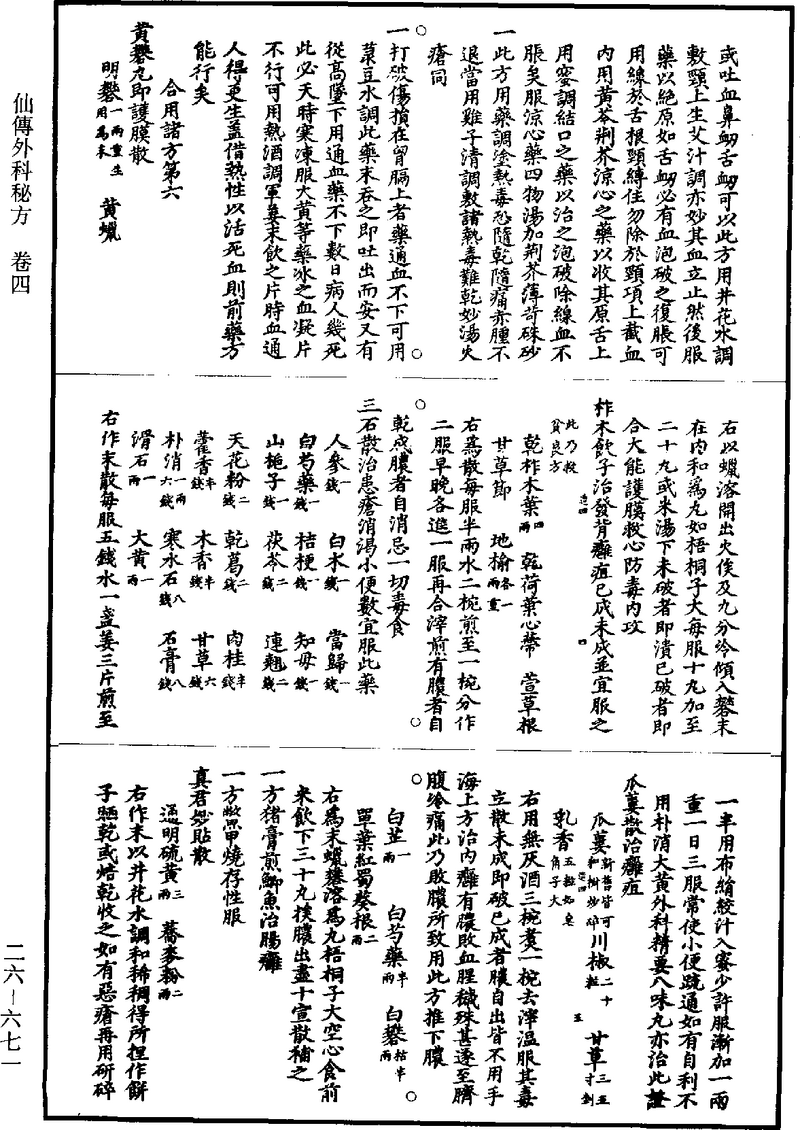 仙傳外科秘方　卷四
二六－六七一
或吐血鼻衂舌衂可以此方用井花水調
敷頸上生艾汁調亦妙其血立止然後服
藥以絕原如舌衂必有血泡破之復脹可
用線於舌根頸縛住勿除於頸項上截血
內用黃芩荆芥涼心之藥以收其原舌上
用蜜調結口之藥以治之泡破除線血不
脹矣服涼心藥四物湯加荆芥薄荷硃砂
一此方用藥調塗熱毒恐隨乾隨痛赤腫不
退當用雞子清調敷諸熱毒難乾妙湯火
瘡同
一打破傷損在胷膈上者藥通血不下可用
菉豆水調此藥末吞之即吐出而安又有
從高墜下用通血藥不下數日病人幾死
此必天時寒凍服大黃等藥冰之血凝片
不行可用熱酒調軍薑末飲之片時血通
人得更生蓋借熱性以活死血則前藥方
能行矣
合用諸方第六
黃礬丸即護膜散
明礬一兩重生用爲末　黃蠟
右以蠟溶開出火俟及九分冷傾入礬末
在內和爲丸如梧桐子大每服十丸加至
二十丸或米湯下未破者即潰已破者即
合大能護膜救心防毒內攻
柞木飲子治發背癰疽已成未成並宜服之
此乃救貧良方
乾柞木葉四兩　乾荷葉心蔕　萱草根
甘草節　地榆各一兩重
右爲散每服半兩水二椀煎至一椀分作
二服早晚各進一服再合滓煎有膿者自
乾成膿者自消忌一切毒食
三石散治患瘡消渴小便數宜服此藥
人參一錢　白朮一錢　當歸一錢
白芍藥一錢　桔梗一錢　知母一錢
山梔子一錢　茯苓二錢　連翹二錢
天花粉二錢　乾葛二錢　肉桂半錢
藿香半錢　木香半錢　甘草六錢
朴消一兩六錢　寒水石八錢　石膏八錢
滑石一兩　大黃一兩
右作末散每服五錢水一盞姜三片煎至
一半用布絹絞汁入蜜少許服漸加一兩
重一日三服常使小便疏通如有自利不
用朴消大黃外科精要八味丸亦治此證
瓜蔞散治癰疽
瓜蔞新舊皆可和樹炒碎　川椒二十粒　甘草三五寸剉
乳香五粒如皂角子大
右用無灰酒三椀煑一椀去滓温服其毒
立散未成即破已成者膿自出皆不用手
海上方治內癰有膿敗血腥穢殊甚遂至臍
腹冷痛此乃敗膿所致用此方推下膿
白芷一兩　白芍藥半兩　白礬枯半兩
單葉紅蜀葵根二兩
右爲末蠟鎔溶爲丸梧桐子大空心食前
米飲下三十丸挨膿出盡十宣散補之
一方猪膏煎鯽魚治腸癰
一方鱉甲燒存性服
真君妙貼散
通明硫黃三兩　蕎麥粉二兩
右作末以井花水調和稀稠得所捏作餅
子晒乾或焙乾收之如有惡瘡再用研碎